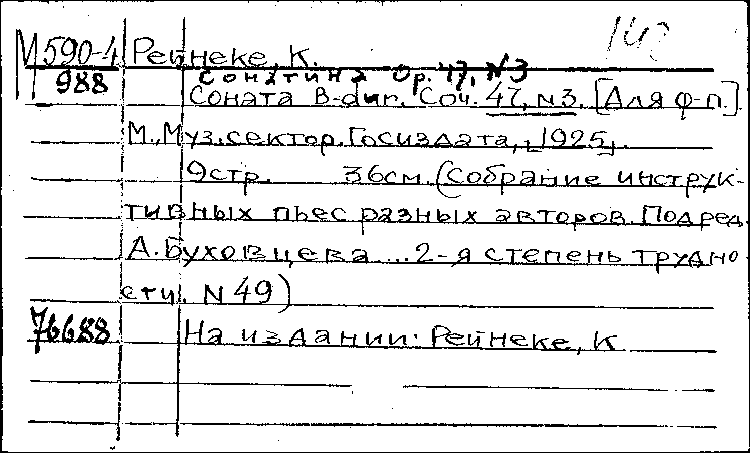 М590-4 Рейнеке, К.
988 Сонатина Op. 47, N3
Соната B-dur. Соч. 47, N3. [Для ф-п.].
М., Муз. сектор. Госиздата, [1925].
9 стр. 36 см. (Собрание инструк-
тивных пьес разных авторов. Под ред.
А. Буховцева ... 2-я степень трудно-
сти. N 49)
76688 На издании: Рейнеке, К